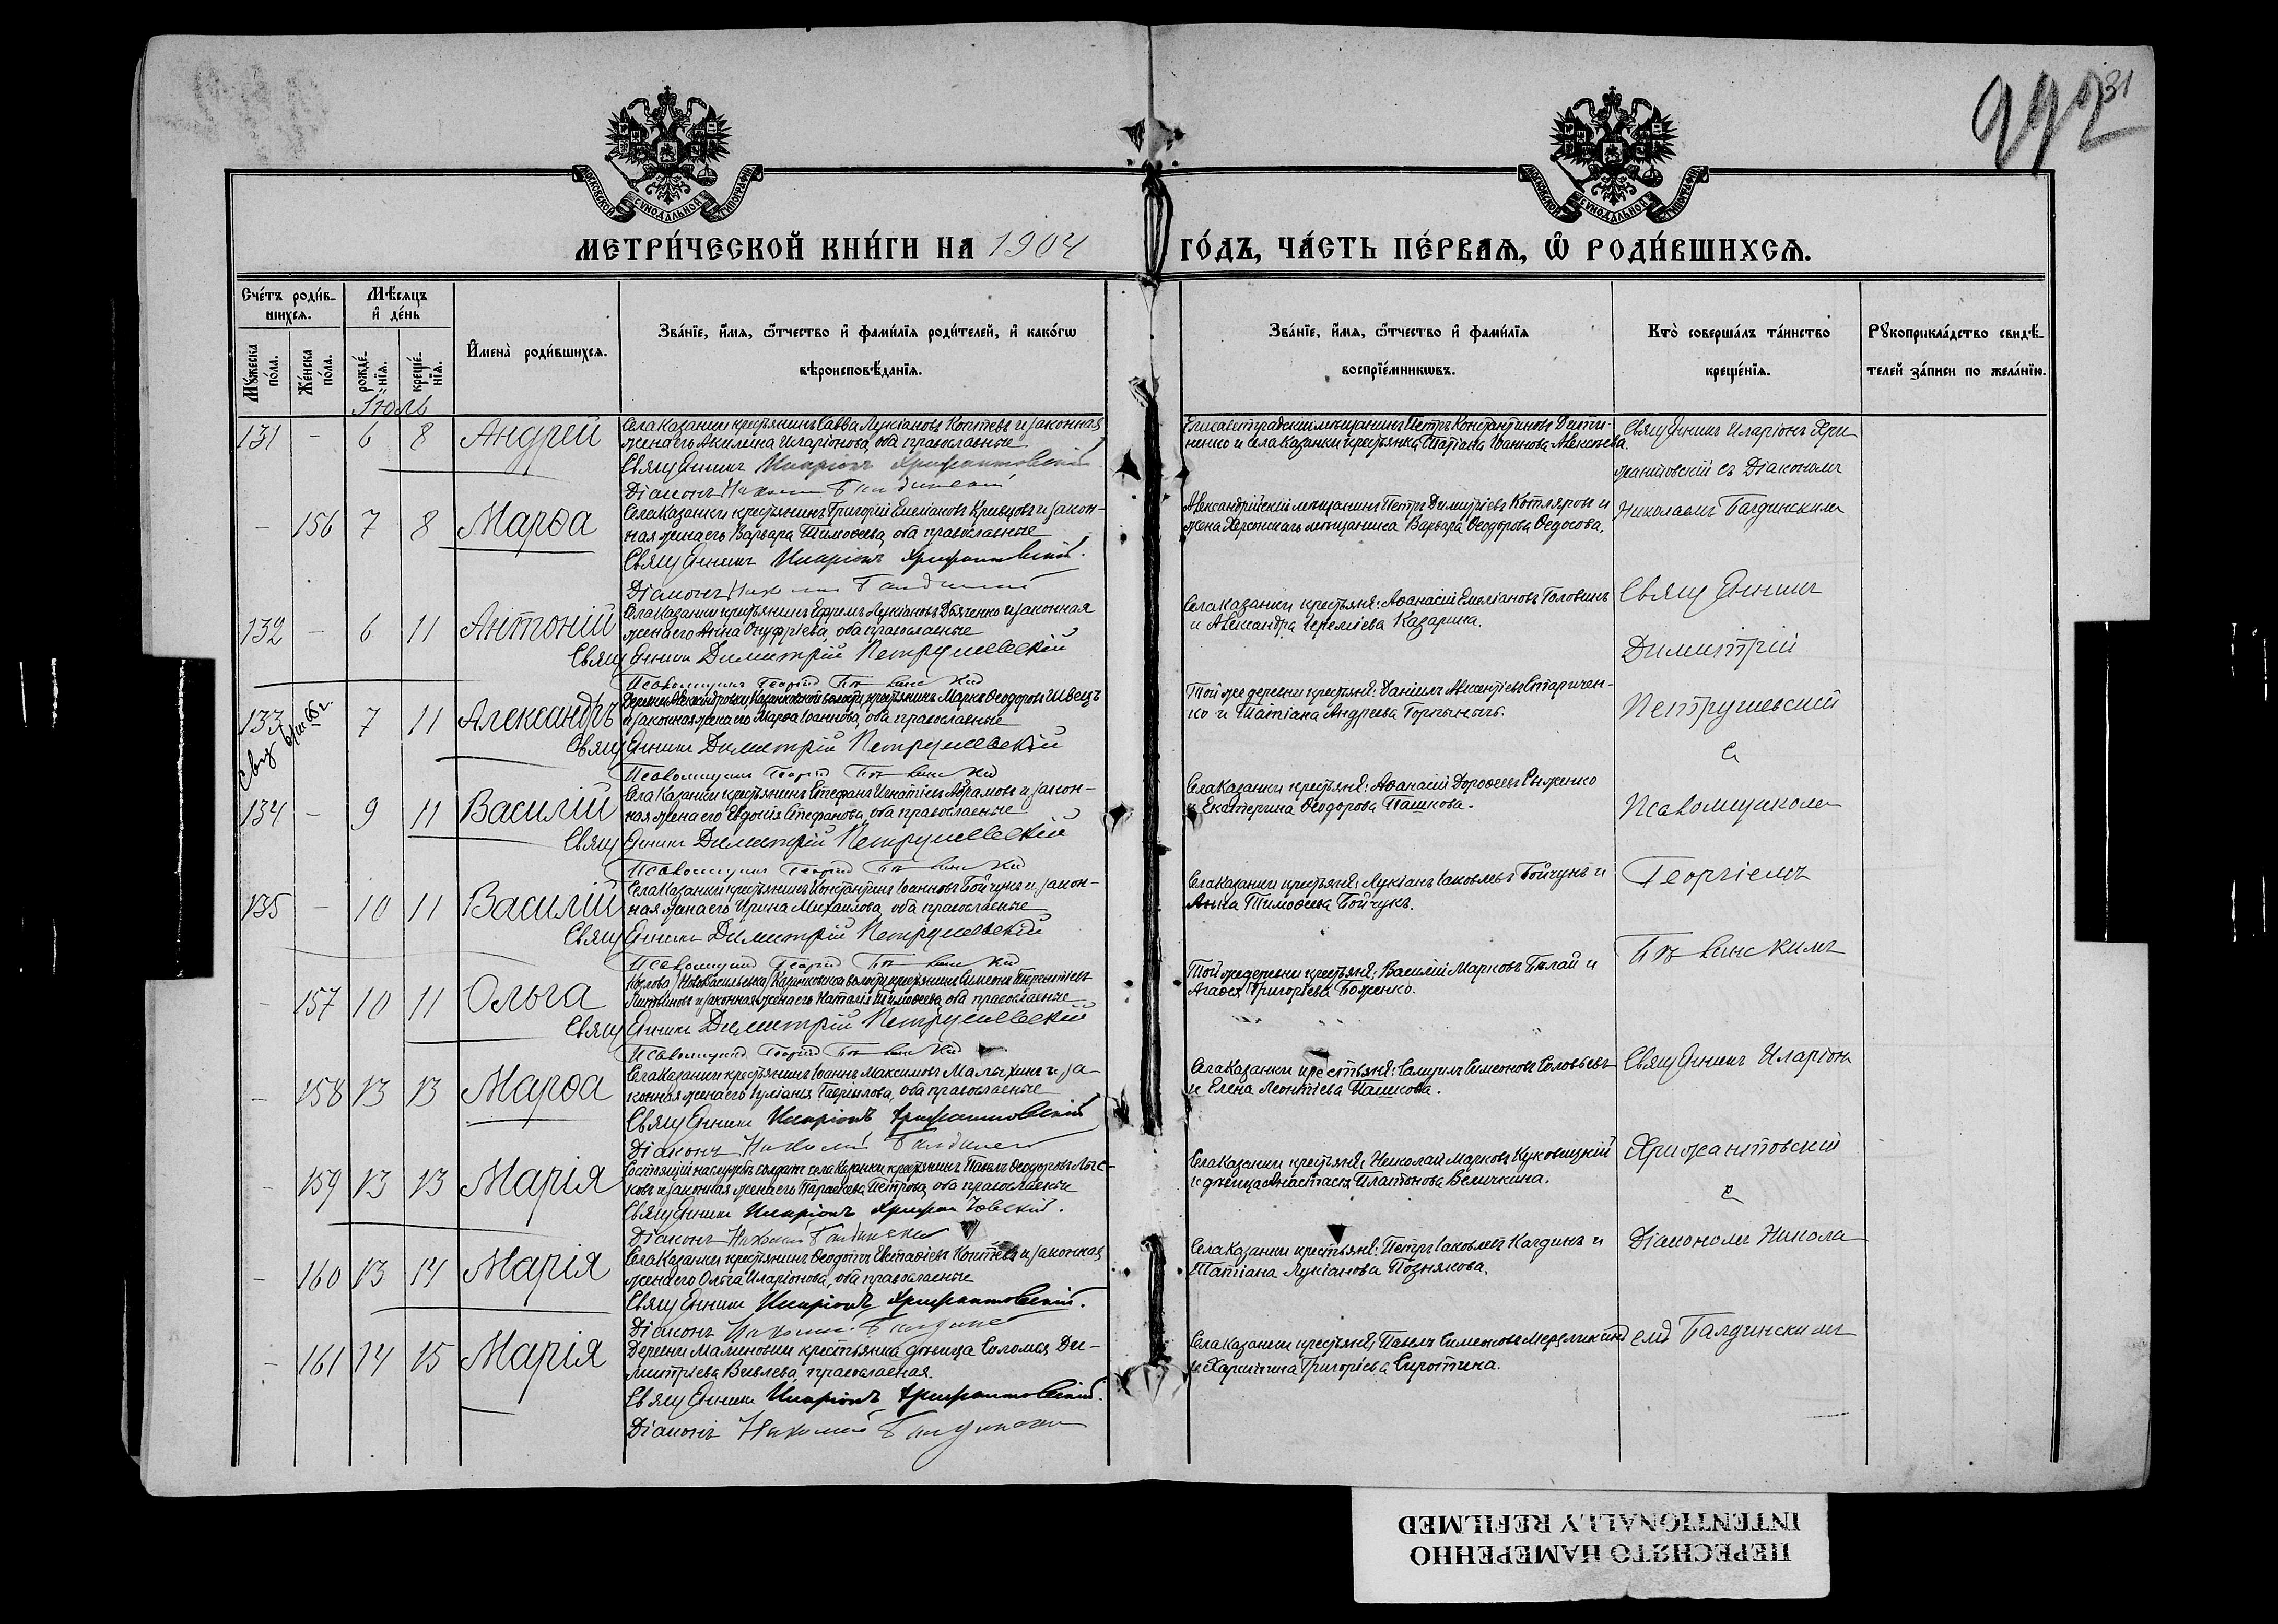 992 31
МОСКОВСКОЙ СѴНОДАЛЬНОЙ ТИПОГРАФІИ
МОСКОВСКОЙ СѴНОДАЛЬНОЙ ТИПОГРАФІИ
МЕТРИ́ЧЕСКОЙ КНИ́ГИ НА 1904 ГО́ДЪ, ЧА́СТЬ ПЕ́РВАѦ, Ѡ҆ РОДИ́ВШИХСѦ.
Сче́тъ роди́вшихсѧ.
Мѣ́сѧцъ и҆ де́нь
Мꙋ́жеска по́ла.
Же́нска по́ла.
рожде́нїѧ.
креще́нїѧ.
И҆мена̀ роди́вшихсѧ.
Зва́нїе, и҆́мѧ, ѻ҆́тчество и҆ фами́лїѧ роди́телей, и҆ како́гѡ
вѣроисповѣ́данїѧ.
Зва́нїе, и҆́мѧ, ѻ҆́тчество и҆ фами́лїѧ
воспрїе́мникѡвъ.
Кто̀ соверша́лъ та́инство
креще́нїѧ.
Рꙋкоприкла́дство свидѣ́-
телей за́писи по жела́нїю.
Іюль
131 - 6 8 Андрей
Села Казанки крестьянинъ Савва Лукіановъ Коптевъ и законная
жена его Акилина Иларіонова, оба православные
Священникъ Иларіонъ Хрисантовскій
Діаконъ Николай Балдинскій
Елисаветградскій мѣщанинъ Петръ Константиновъ
и села Казанки крестьянка Татіана Іоаннова Алексѣева.
Священникъ Иларіонъ Хри-
жантовскій съ Діакономъ
- 156 7 8 Марѳа
Села Казанки крестьянинъ Григорій Емеліановъ Кривцовъ и закон-
ная жена его Варвара Тимоѳеева, оба православные
Священникъ Иларіонъ Хрисантовскій.
Діаконъ Николай Балдинскій
Александрійскій мѣщанинъ Петръ Димитріевъ Котляровъ и
жена Херсонскаго мѣщанина Варвара Ѳеодорова Ѳедосова.
Николаемъ Балдинскимъ
132 - 6 11 Антоній
Села Казанки крестьянинъ Ефремъ Лукіановъ Дьяченко и законная
жена его Анна Онуфріева, оба православные
Священникъ Димитрій Петрушевскій
Псаломщикъ Георгій
Села Казанки крестьяне: Аѳанасій Емеліановъ Головинъ
и Александра Іереміева Казарина.
Священникъ
Димитрій
133 7 11 Александръ
Деревни Александровки, Казанковской волости, крестьянинъ Марко Ѳеодоровъ Швецъ
и законная жена его Марѳа Іоаннова, оба православные
Священникъ Димитрій Петрушевскій
Псаломщикъ Георгій
Той же деревни крестьяне: Даніилъ Авксентіевъ Старичен-
ко и Татіана Андреева
Петрушевскій
съ
134 - 9 11 Василій
Села Казанки крестьянинъ Стефанъ Игнатіевъ Абрамовъ и закон-
ная жена его Евдокія Стефанова, оба православные
Священникъ Димитрій Петрушевскій
Псаломщикъ Георгій
Села Казанки крестьяне: Аѳанасій Дороѳеевъ Рыженко
и Екатерина Ѳеодорова Пашкова.
Псаломщикомъ
135 - 10 11 Василій
Села Казанки крестьянинъ Константинъ Іоанновъ Бойчукъ и закон-
ная жена его Ирина Михаилова, оба православные
Священникъ Димитрій Петрушевскій
Псаломщикъ Георгій
Села Казанки крестьяне: Лукіанъ Іаковлевъ Бойчукъ и
Анна Тимоѳеева Бойчукъ.
Георгіемъ
- 157 10 11 Ольга
Казанковской волости, крестьянинъ Симеонъ Терентіевъ
Литвиновъ и законная жена его Наталія Тимоѳеева, оба православные
Священникъ Димитрій Петрушевскій
Псаломщикъ Георгій
Той же деревни крестьяне: Василій Марковъ Бѣлай и
Агаѳія Григоріева Боженко.
- 158 13 13 Марѳа
Села Казанки крестьянинъ Іоаннъ Максимовъ Малыхинъ и за-
конная жена его Іуліанія Гавріилова, оба православные
Священникъ Иларіонъ Хрисантовскій
Діаконъ Николай Балдинскій
Села Казанки крестьяне: Самуилъ Симеоновъ Соловьевъ
и Елена Леонтіева Пашкова.
Священникъ Иларіонъ
- 159 13 13 Марія
Состоящій на службѣ солдатъ села Казанки крестьянинъ Павелъ Ѳеодоровъ Лыс-
ковъ и законная жена его Параскева Петрова, оба православные
Священникъ Иларіонъ Хрисантовскій.
Діаконъ Николай Балдинскій
Села Казанки крестьяне: Николай Марковъ Куковицкій
и дѣвица Анастасія Платонова Величкина.
Хрисантовскій
съ
- 160 13 14 Марія
Села Казанки крестьянинъ Ѳеодотъ Евстаѳіевъ Коптевъ и законная
жена его Ольга Иларіонова, оба православные
Священникъ Иларіонъ Хрисантовскій.
Діаконъ Николай Балдинскій
Села Казанки крестьяне: Петръ Іаковлевъ Калдинъ и
Татіана Лукіанова Познякова.
Діакономъ Никола-
- 161 14 15 Марія
Деревни Малиновки крестьянка дѣвица Соломія Ди-
митріева православная.
Священникъ Иларіонъ Хрисантовскій.
Діаконъ Николай Балдинскій
Села Казанки крестьяне: Павелъ Симеоновъ Мерзликинъ
и Харитина Григоріева Сиротина.
емъ Балдинскимъ
ПЕРЕСНЯТО НАМЕРЕННО
INTENTIONALLY REFILMED